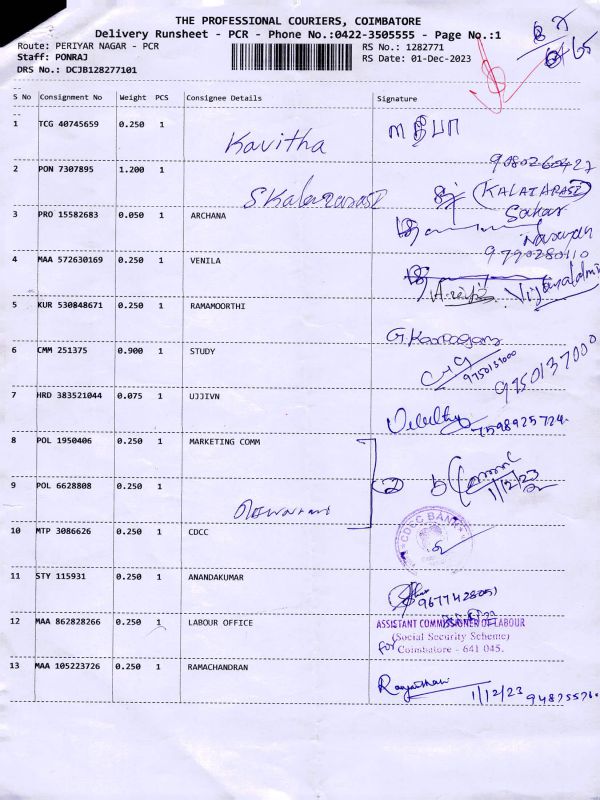 THE PROFESSIONAL COURIERS, COIMBATORE
Delivery Runsheet - PCR - Phone No.:0422-3505555 - Page No.:1
Route: PERIYAR NAGAR - PCR RS No.: 1282771
Staff: PONRAJ RS Date: 01-Dec-2023
DRS No.: DCJB128277101
S No Consignment No Weight PCS Consignee Details Signature
1 TCG 40745659 0.250 1 Kavitha
2 PON 7307895 1.200 1 SKalaiarasi (KALAIARASI)
3 PRO 15582683 0.050 1 ARCHANA
4 MAA 572630169 0.250 1 VENILA 9790280110
5 KUR 530848671 0.250 1 RAMAMOORTHI
6 CMM 251375 0.900 1 STUDY 9750137000
7 HRD 383521044 0.075 1 UJJIVN 7598925724
8 POL 1950406 0.250 1 MARKETING COMM
9 POL 6628808 0.250 1 1/12/23
10 MTP 3086626 0.250 1 CDCC CDCC BANK
11 STY 115931 0.250 1 ANANDAKUMAR
12 MAA 862828266 0.250 1 LABOUR OFFICE ASSISTANT COMMISSIONER OF LABOUR
(Social Security Scheme)
for Coimbatore - 641 045.
13 MAA 105223726 0.250 1 RAMACHANDRAN 1/12/23